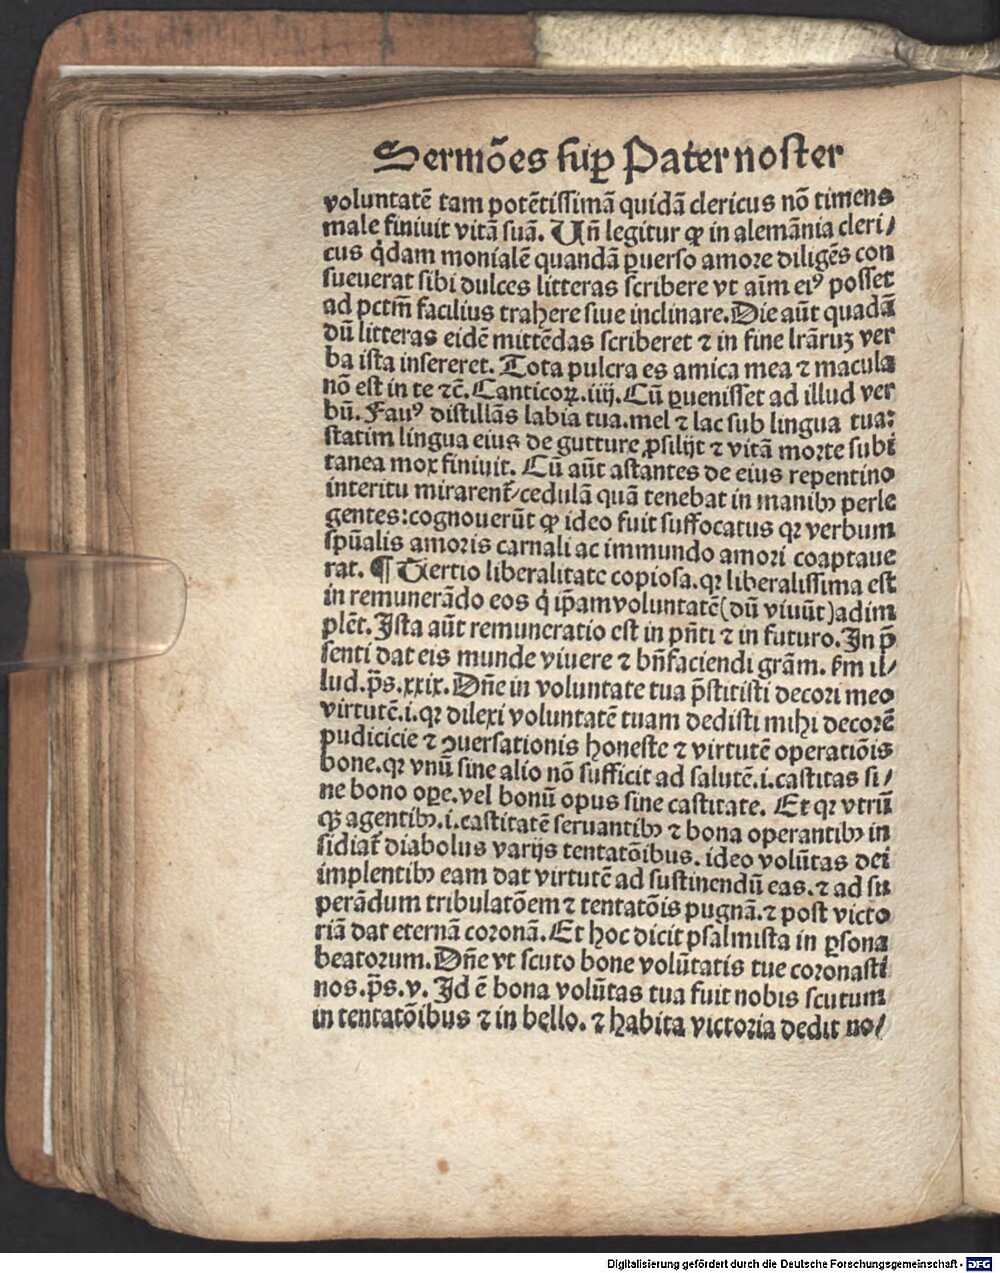 Sermões sup̱ Pater noster
voluntatē tam potētissimā quidā clericus nō timens
male finiuit vitā suā. Vn̄ legitur ꝙ in alemānia cleri/
cus q̇dam monialē quandā ꝑuerso amore diligēs con
sueuerat sibi dulces litteras scribere vt aīm eiꝰ posset
ad pctm̄ facilius trahere siue inclinare. Die aūt quadā
dū litteras eidē mittēdas scriberet ⁊ in fine lr̄aruꝫ ver
ba ista insereret. Tota pulcra es amica mea ⁊ macula
nō est in te ⁊c̄. Canticoꝝ. iiij. Cū ꝑuenisset ad illud ver
bū. Fauꝰ distillās labia tua. mel ⁊ lac sub lingua tua:
statim lingua eius de gutture ꝓsilijt ⁊ vitā morte subi
tanea mox finiuit. Cū aūt astantes de eius repentino
interitu mirarent᷑/cedulā quā tenebat in manibꝫ perle
gentes: cognouerūt ꝙ ideo fuit suffocatus qꝛ verbum
spūalis amoris carnali ac immundo amori coaptaue
rat. ¶ Tertio liberalitate copiosa. qꝛ liberalissima est
in remunerādo eos q̇ ip̄am voluntatē (dū viuūt) adim
plēt. Ista aūt remuneratio est in pn̄ti ⁊ in futuro. In p̄
senti dat eis munde viuere ⁊ bn̄faciendi grām. ẜm il/
lud. ps̄. xxix. Dn̄e in voluntate tua p̄stitisti decori meo
virtutē. i. qꝛ dilexi voluntatē tuam dedisti mihi decorē
pudicicie ⁊ ꝯuersationis honeste ⁊ virtutē operatiōis
bone. qꝛ vnū sine alio nō sufficit ad salutē. i. castitas si/
ne bono oꝑe. vel bonū opus sine castitate. Et qꝛ vtrū
qꝫ agentibꝫ. i. castitatē seruantibꝫ ⁊ bona operantibꝫ in
sidiat᷑ diabolus varijs tentatōibus. ideo volūtas dei
implentibꝫ eam dat virtutē ad sustinendū eas. ⁊ ad su
perādum tribulatōem ⁊ tentatōis pugnā. ⁊ post victo
riā dat eternā coronā. Et hoc dicit psalmista in ꝑsona
beatorum. Dn̄e vt scuto bone volūtatis tue coronasti
nos. ps̄. v. Id ē bona volūtas tua fuit nobis scutum
in tentatōibus ⁊ in bello. ⁊ habita victoria dedit no/
Digitalisierung gefördert durch die Deutsche Forschungsgemeinschaft - DFG